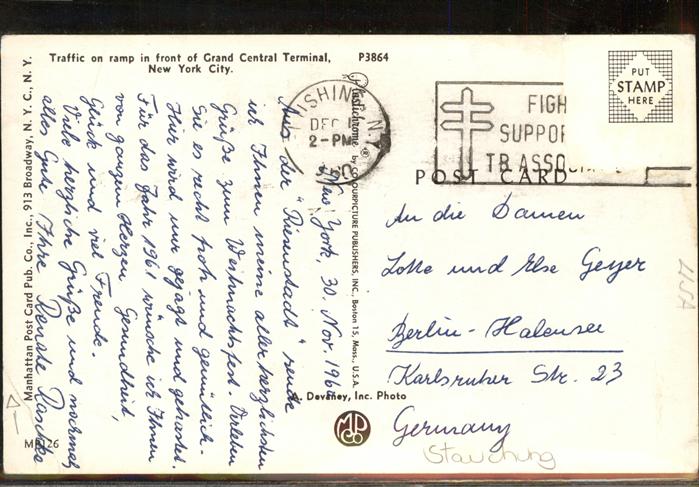 Traffic on ramp in front of Grand Central Terminal,
New York City.
P3864
PUT
STAMP
HERE
DEC 1
2-PM
FIGH
SUPPO
TB ASSO
POST CARD
Manhattan Post Card Pub. Co., Inc., 913 Broadway, N.Y.C., N.Y.
Plastichrome ® by COLOURPICTURE PUBLISHERS, INC., Boston 15, Mass., U.S.A.
New York, 30. Nov. 196
Aus der "Riesenstadt" sende
ich Ihnen meine allerherzlichsten
Grüße zum Weihnachtsfest. Verleben
Sie es recht froh und gemütlich.
Hier wird nur gejagt und gehastet.
Für das Jahr 1961 wünsche ich Ihnen
von ganzem Herzen Gesundheit,
Glück und viel Freude.
Viele herzliche Grüße und nochmals
alles Gute Ihre Renate
An die Damen
Lotte und Else Geyer
Berlin-Halensee
Karlsruher Str. 23
Germany
A. Devaney, Inc. Photo
MPCo
Stauchung
USA